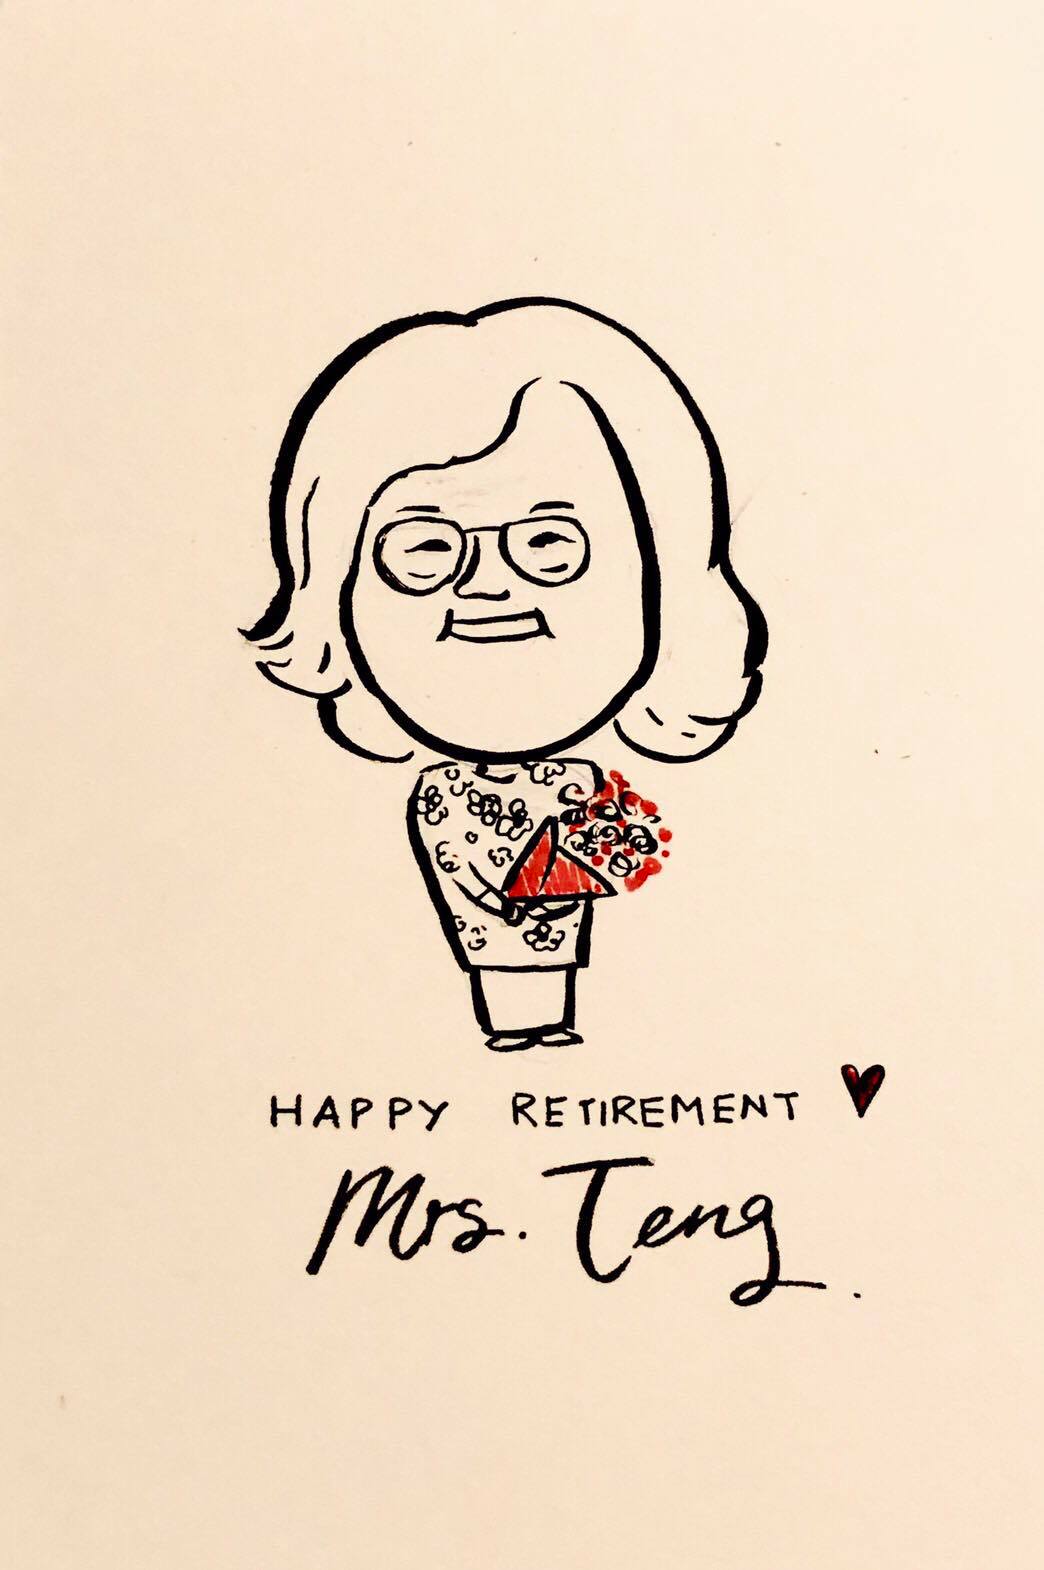 HAPPY RETIREMENT
Mrs. Teng.